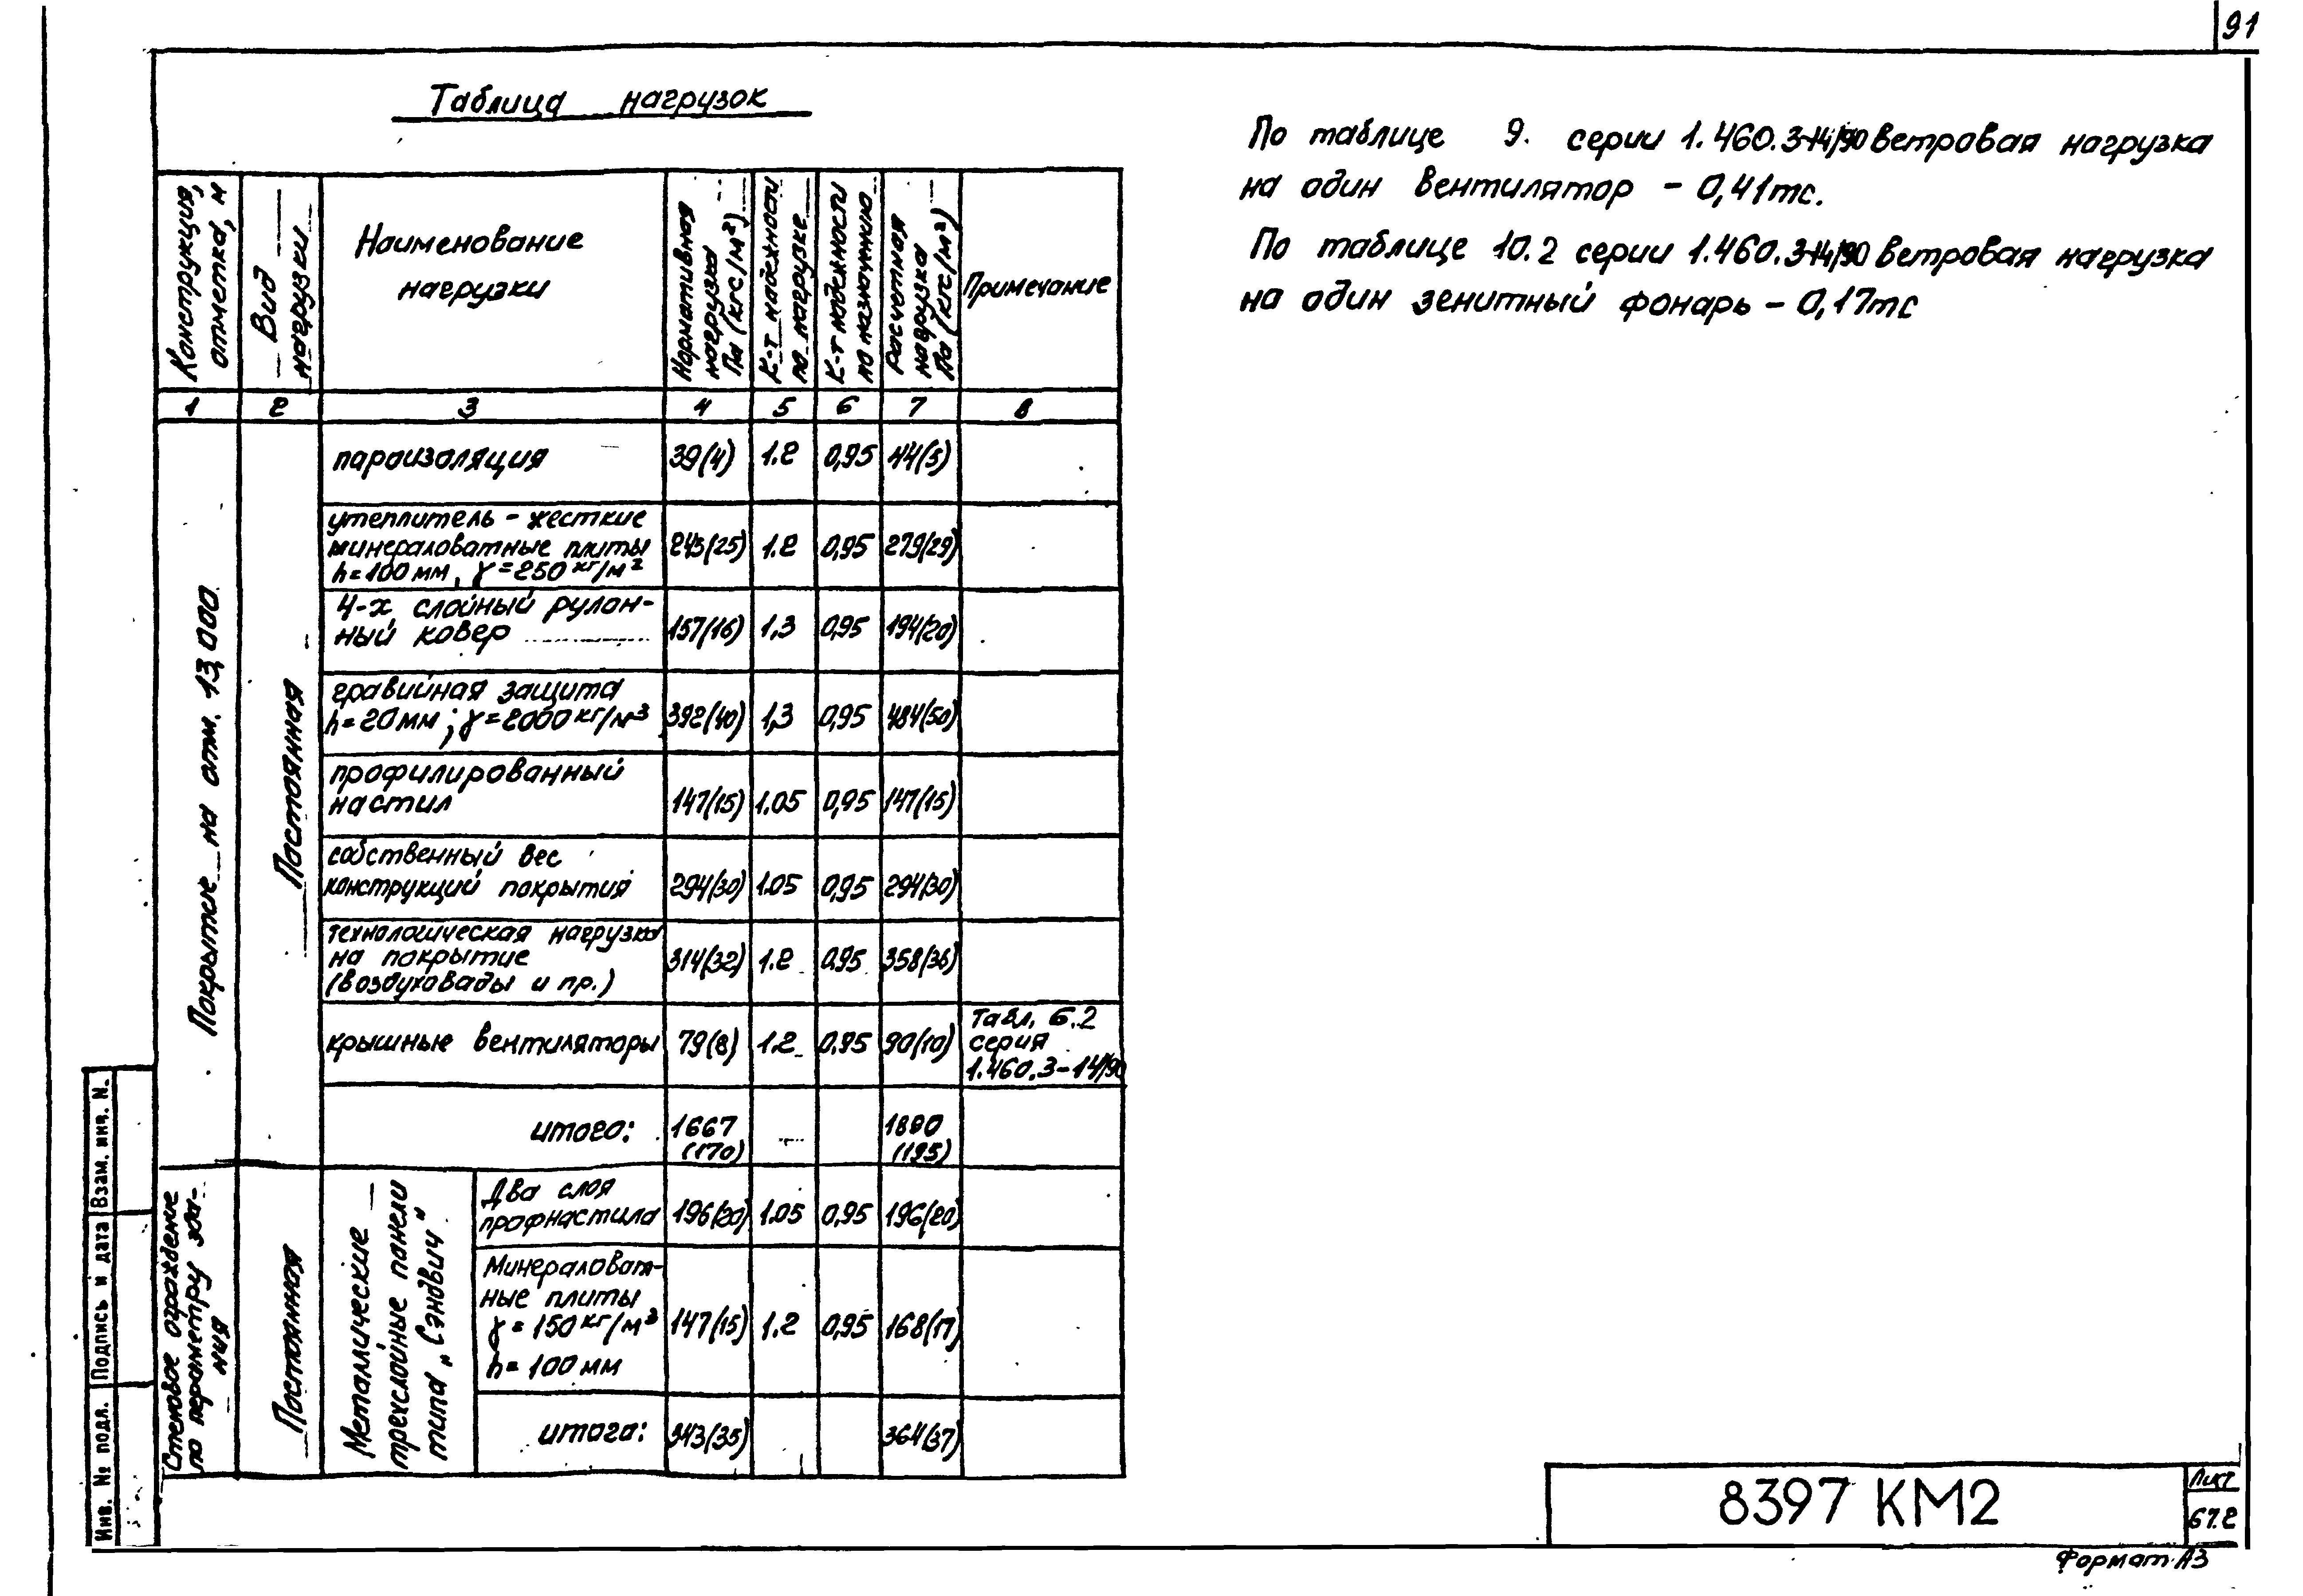 91
Таблица нагрузок
По таблице 9. серии 1.460.3-14/90 ветровая нагрузка
на один вентилятор - 0,41тс.
По таблице 10.2 серии 1.460.3-14/90 ветровая нагрузка
на один зенитный фонарь - 0,17тс
Конструкция,
отметка, м
Вид
нагрузки
Наименование
нагрузки
Нормативная
нагрузка
Па (кгс/м²)
К-т надежности
по нагрузке
К-т надежности
по назначению
Расчетная
нагрузка
Па (кгс/м²)
Примечание
1 2 3 4 5 6 7 8
Покрытие на отм. 13,000
Постоянная
пароизоляция 39(4) 1.2 0,95 44(5)
утеплитель - жесткие
минераловатные плиты 245(25) 1.2 0,95 279(29)
h=100мм, γ=250кг/м²
4-х слойный рулон-
ный ковер 157(16) 1,3 0,95 194(20)
гравийная защита
h=20мм; γ=2000кг/м3 392(40) 1,3 0,95 484(50)
профилированный
настил 147(15) 1.05 0,95 147(15)
собственный вес
конструкций покрытия 294(30) 1.05 0,95 294(30)
технологическая нагрузка
на покрытие 314(32) 1.2 0.95 358(36)
(воздуховады и пр.)
крышные вентиляторы 79(8) 1.2 0.95 90(10)
Табл. 6.2
серия
1.460.3-14/90
итого: 1667 1890
(170) (195)
Стеновое ограждение
по периметру зда-
ния
Постоянная
Металлические
трехслойные панели
типа „Сэндвич"
Два слоя
профнастила 196(20) 1.05 0,95 196(20)
Минераловат-
ные плиты
γ=150кг/м3 147(15) 1.2 0,95 168(17)
h=100мм
итога: 343(35) 364(37)
Инв. № подл. Подпись и дата Взам. инв. N.
8397 КМ2
Лист
67.2
Формат А3